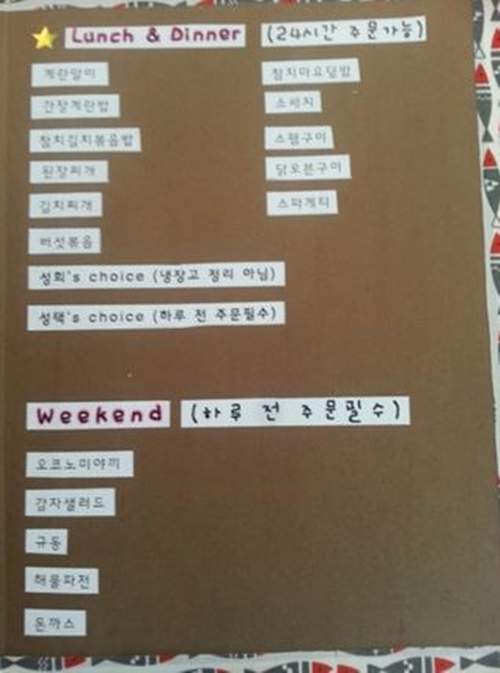 Lunch & Dinner (24시간 주문가능)
계란말이
간장계란밥
참치김치볶음밥
된장찌개
김치찌개
버섯볶음
참치마요덮밥
소세지
스팸구이
닭오븐구이
스파게티
성희's choice (냉장고 정리 아님)
성택's choice (하루 전 주문필수)
Weekend (하루 전 주문필수)
오코노미야끼
감자샐러드
규동
해물파전
돈까스